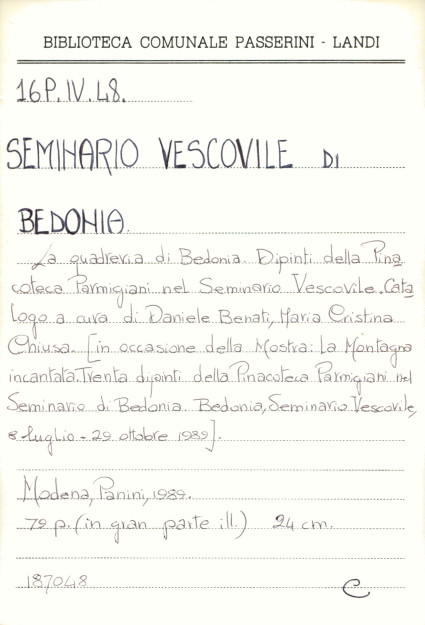 BIBLIOTECA COMUNALE PASSERINI - LANDI
16P.IV.48.
SEMINARIO VESCOVILE DI
BEDONIA.
La quadreria di Bedonia. Dipinti della Pina
coteca Parmigiani nel Seminario Vescovile. Cata
logo a cura di Daniele Benati, Maria Cristina
Chiusa. [in occasione della Mostra: La Montagna
incantata. Trenta dipinti della Pinacoteca Parmigiani nel
Seminario di Bedonia. Bedonia, Seminario Vescovile,
8 luglio - 29 ottobre 1989].
Modena, Panini, 1989.
79 p. (in gran parte ill.) 24 cm.
187048 C